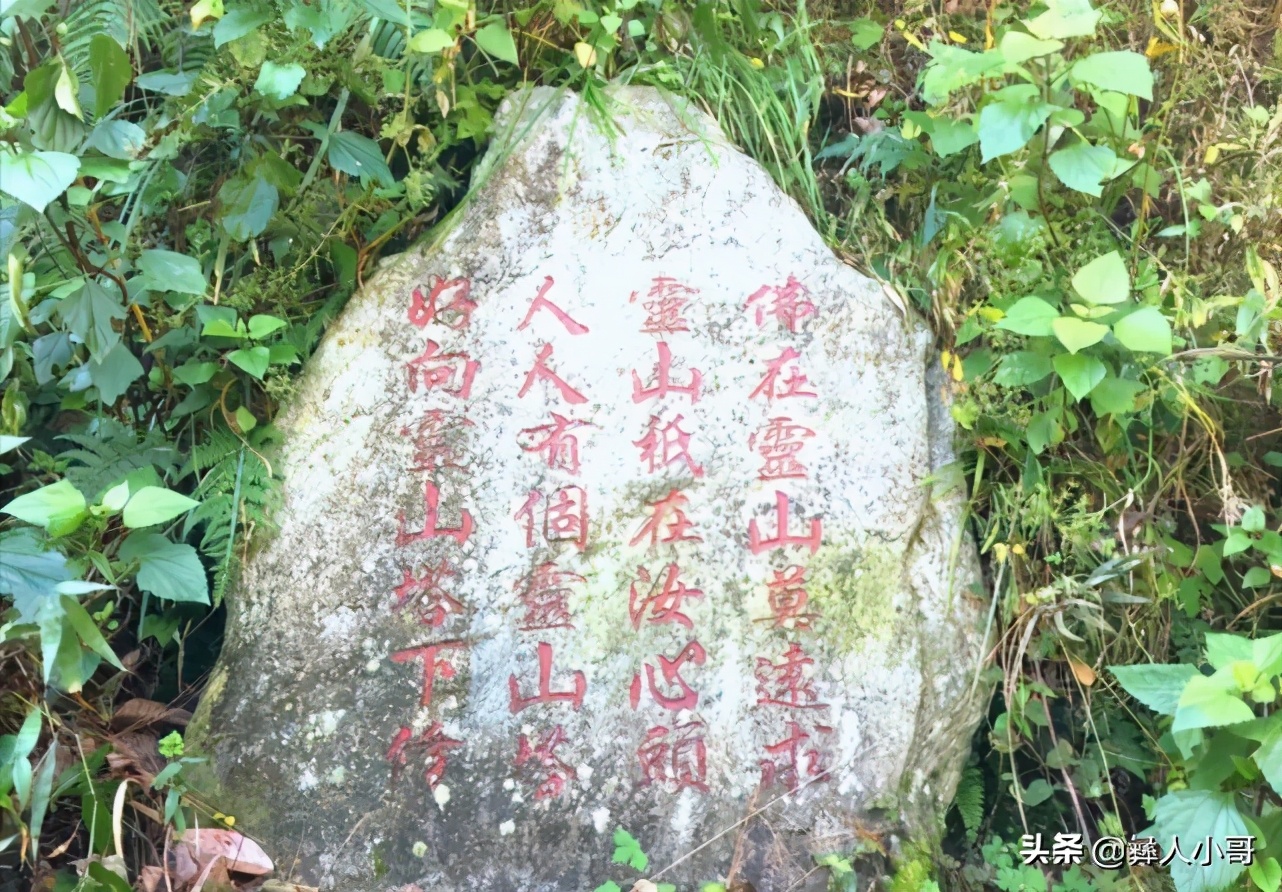 佛在靈山莫遠求
靈山祇在汝心頭
人人有個靈山塔
好向靈山塔下修
头条 @彝人小哥